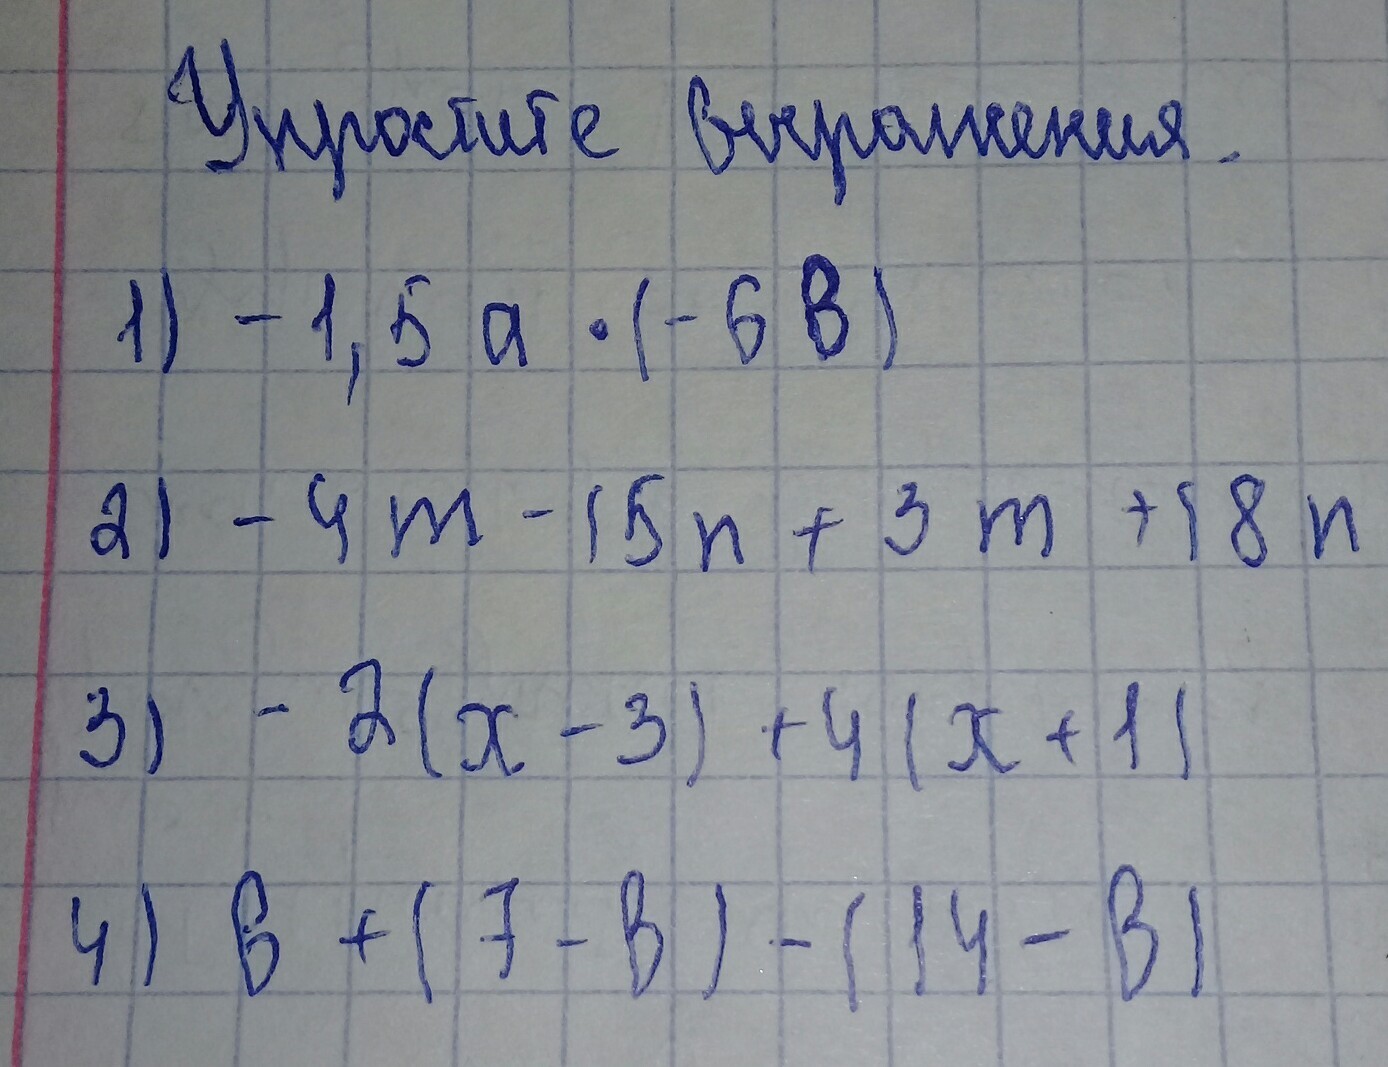 Упростите выражения.
1) -1,5 a · (-6 в)
2) - 4 m - 15 n + 3 m + 18 n
3) - 2 (x - 3) + 4 (x + 1)
4) в + (7 - в) - (14 - в)